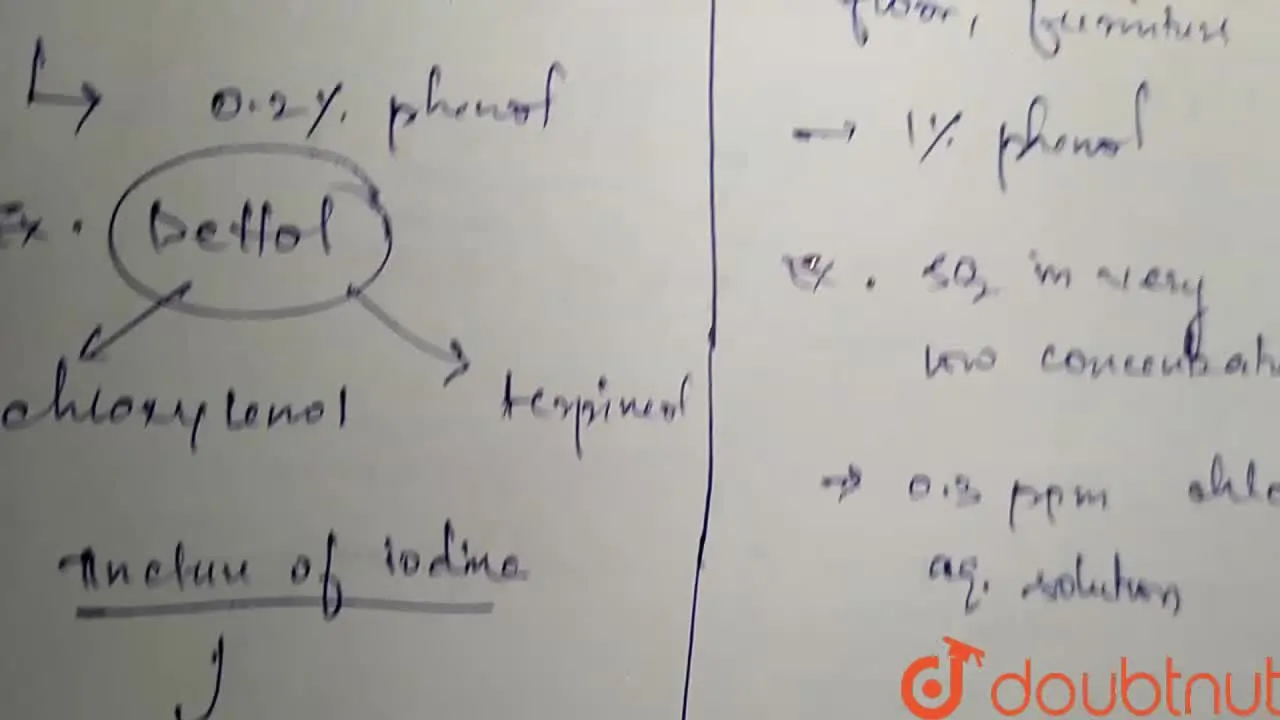 0.2% phenol
Ex. Dettol
chloxylenol terpineol
Tincture of iodine
floor, furniture
→ 1% phenol
Ex. SO2 in very
low concentrat
→ 0.2 ppm chlo
aq. solution
doubtnut